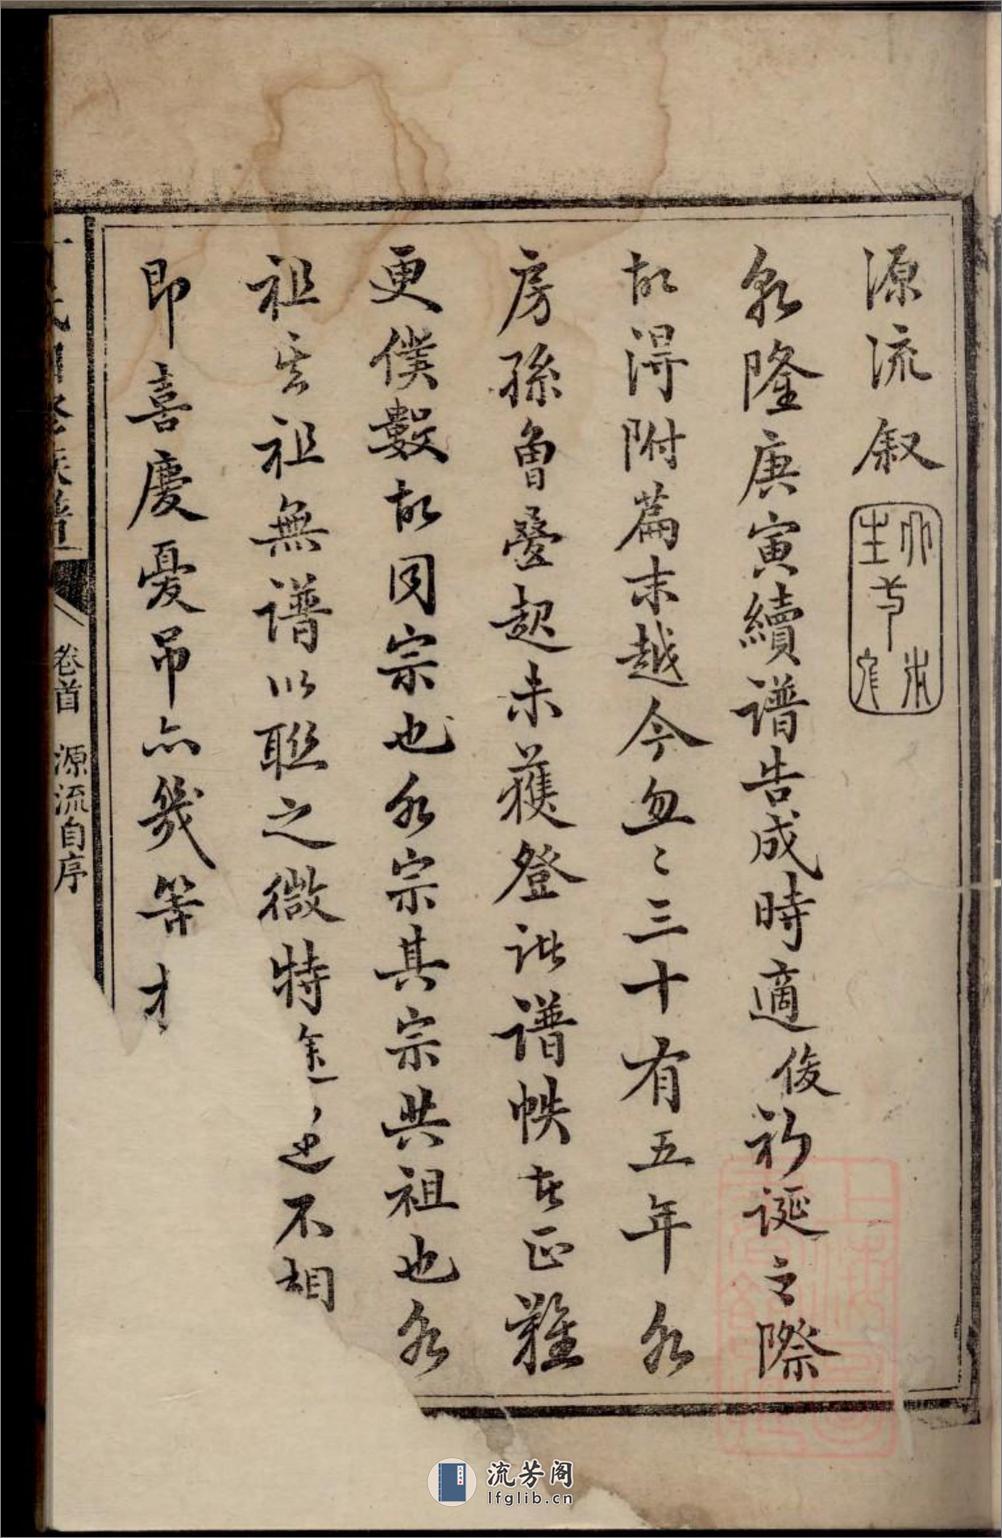 源流叙
乾隆庚寅續譜告成時適俊初誕之際
故得附篇末越今忽〻三十有五年各
房孫曾疊起未獲登譜帙者正難
更僕數故同宗也各宗其宗共祖也各
祖其祖無譜以聯之微特不相
即喜慶憂吊亦幾等
族譜
卷首 源流自序
流芳阁
lfglib.cn